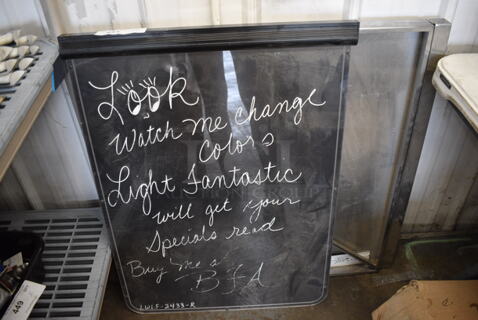 Look
Watch me change
Colors
Light Fantastic
will get your
Specials read
Buy me a
LWLF-2433-R
449